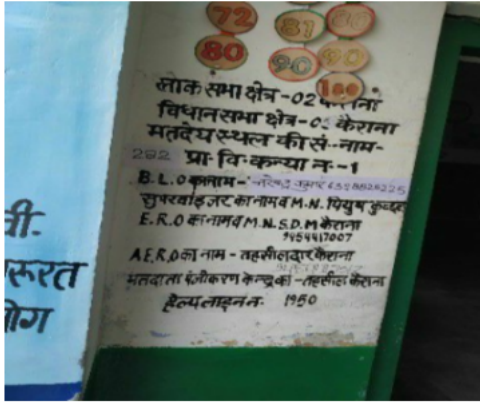 72
81
80
90
90
100
लोक सभा क्षेत्र -02 कैराना
विधान सभा क्षेत्र - कैराना
मतदेय स्थल की सं.- नाम-
282 प्रा. वि. कन्या न. -1
B.L.O का नाम-
सुपरवाइजर का नाम व M.N. पियुष कुमार
E.R.O का नाम व M.N. S.D.M कैराना
9454417007
A.E.R.O का नाम - तहसीलदार कैराना
मतदाता पंजीकरण केन्द्र का - तहसील कैराना
हेल्प लाइन न. 1950
वी.
रूरत
ोग